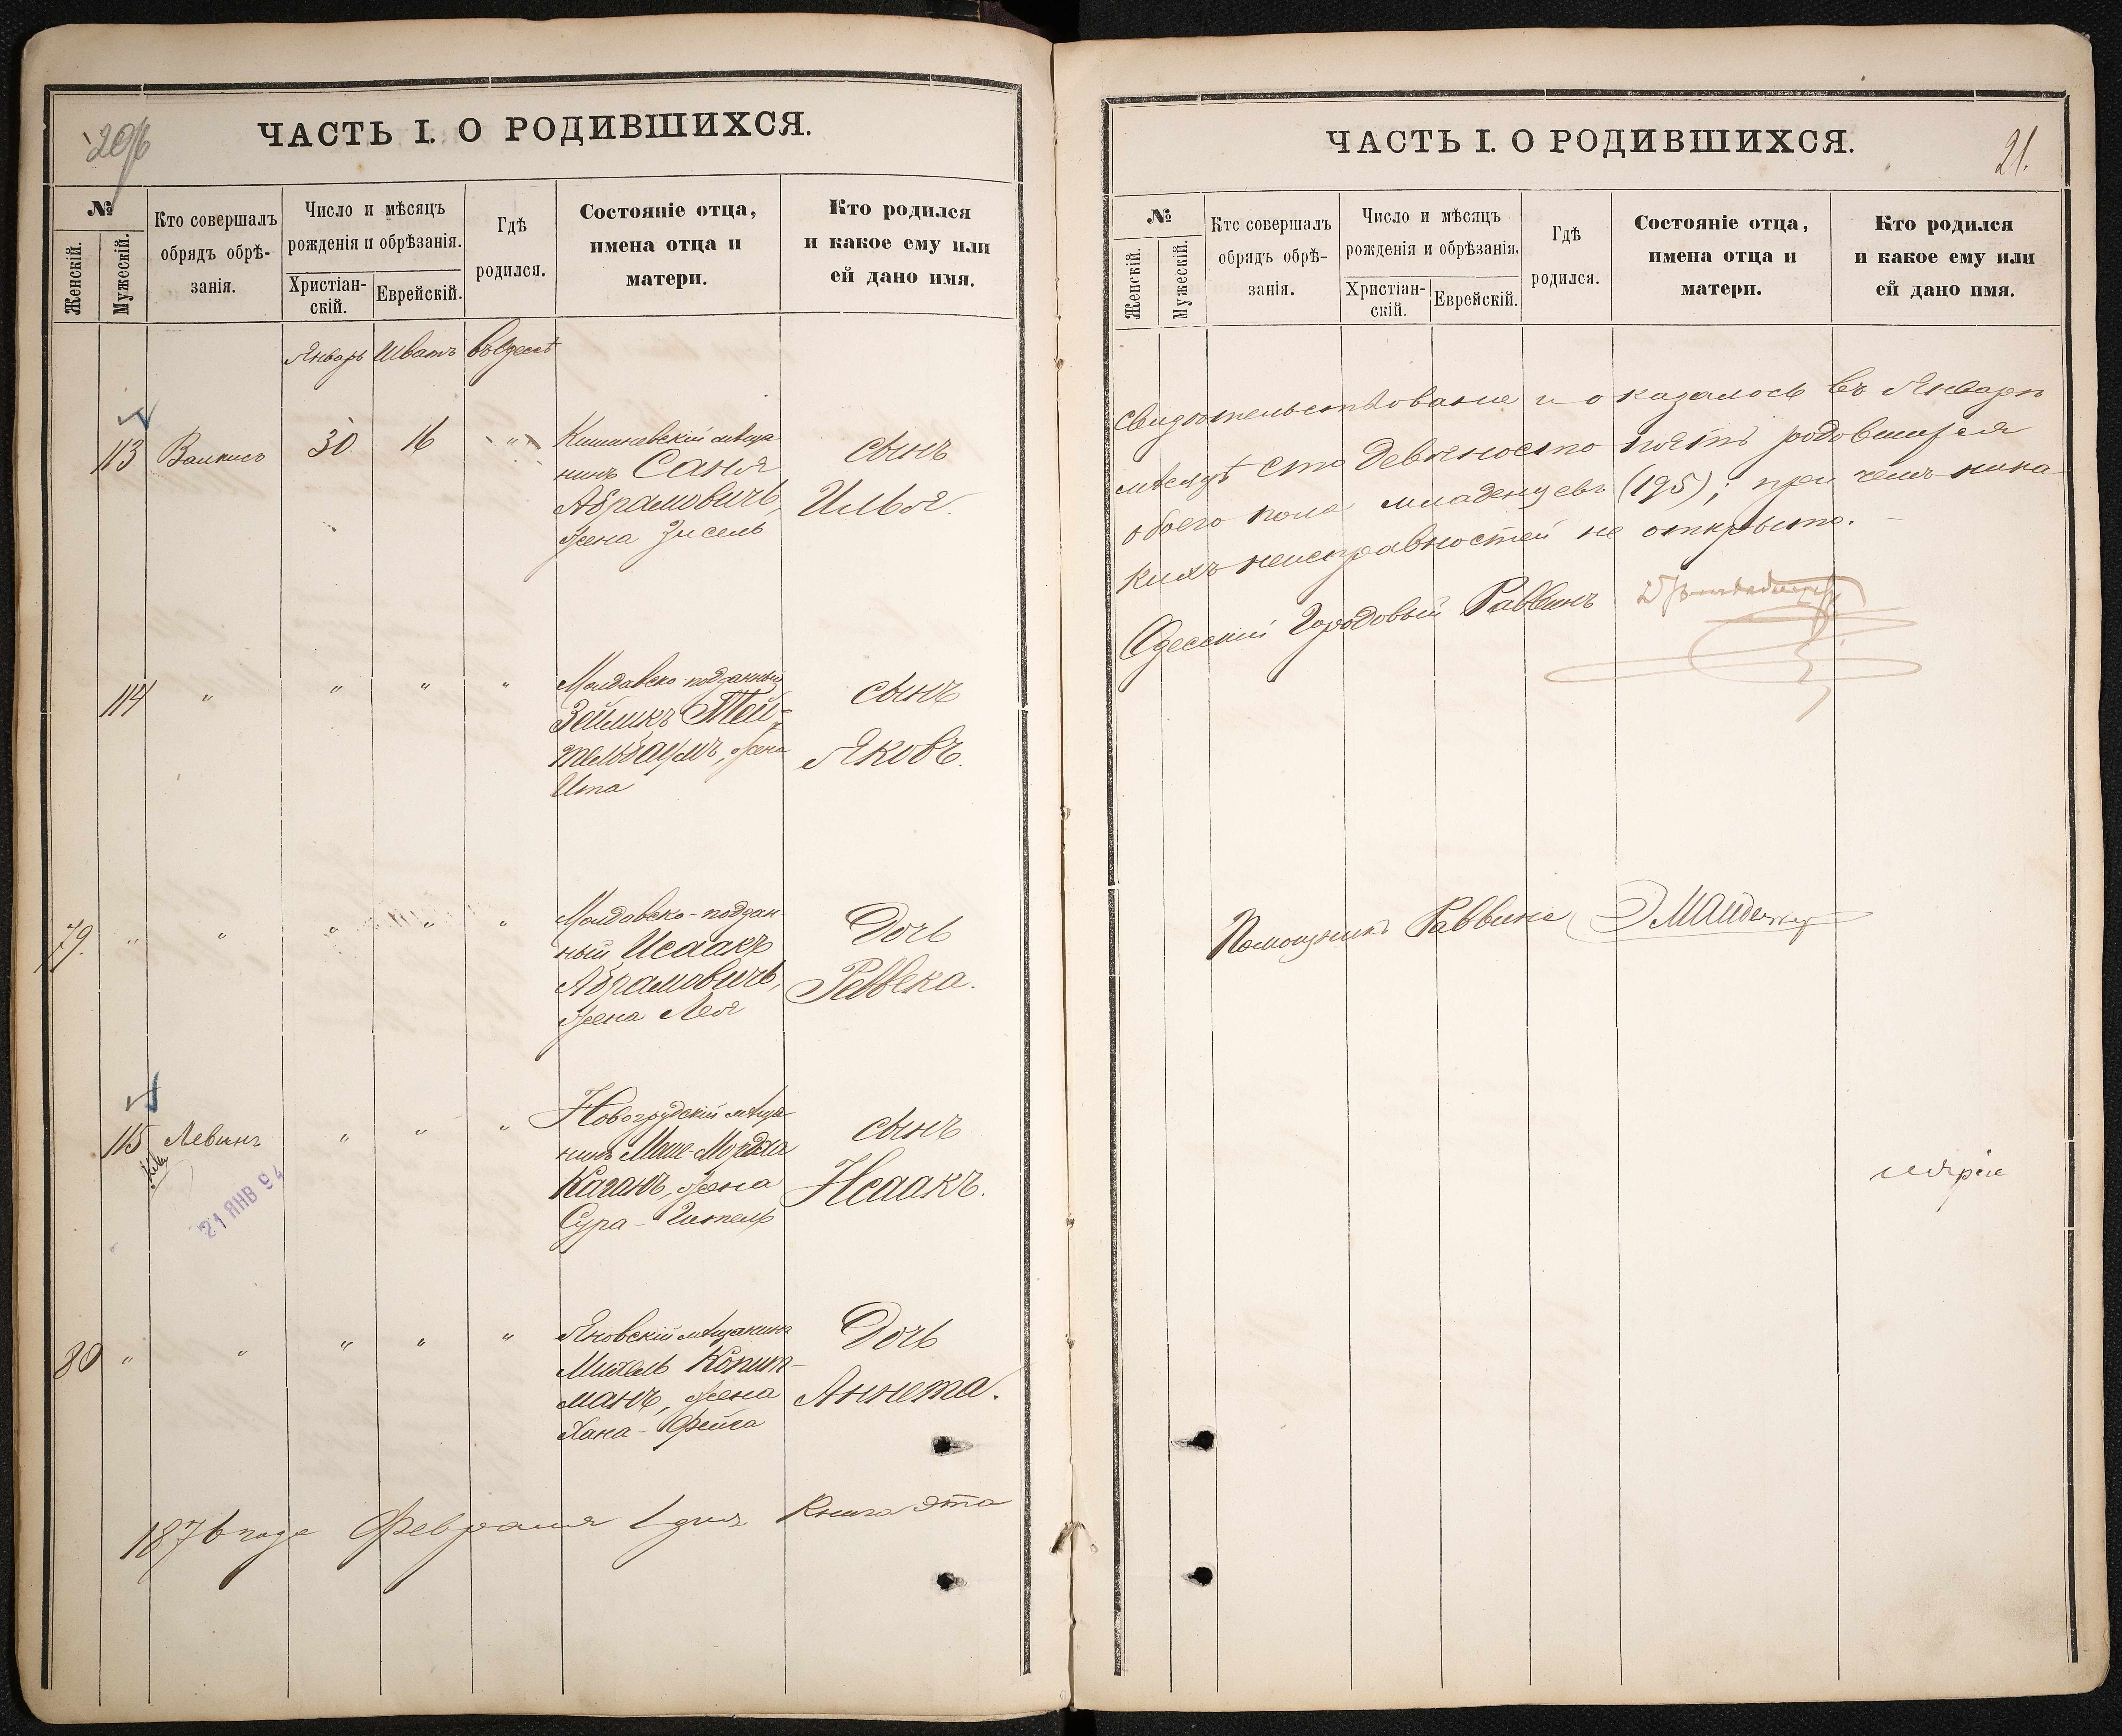 206
ЧАСТЬ I. О РОДИВШИХСЯ.
№
Женскій.
Мужескій.
Кто совершалъ
обрядъ обрѣ-
занія.
Число и мѣсяцъ
рожденія и обрѣзанія.
Христіан-
скій.
Еврейскій.
Гдѣ
родился.
Состояніе отца,
имена отца и
матери.
Кто родился
и какое ему или
ей дано имя.
Январь Шватъ въ Одессѣ
113 30 16 Кишиневскій мѣща
нинъ Саня
Абрамовичъ,
жена Зисель
сынъ
Илья.
114 " " " " Молдавско подданный
Зейликъ Тей-
тельбаумъ, жена
Ита
сынъ
Яковъ.
79. " " " " " Молдавско-поддан-
ный Исаакъ
Абрамовичъ,
жена Лея
Дочь
Ревека.
115 Левинъ " " " Новогрудскій мѣща-
нинъ Мордха
Каганъ, жена
Сура-Гитель
сынъ
Исаакъ.
21 ЯНВ 94
80 " " " " " Яновскій мѣщанинъ
Михель Копит-
манъ, жена
Хана-Фейга
Дочь
Аннета.
1876 года Февраля 1 дня Книга эта
ЧАСТЬ I. О РОДИВШИХСЯ.
21.
№
Женскій.
Мужескій.
Кто совершалъ
обрядъ обрѣ-
занія.
Число и мѣсяцъ
рожденія и обрѣзанія.
Христіан-
скій.
Еврейскій.
Гдѣ
родился.
Состояніе отца,
имена отца и
матери.
Кто родился
и какое ему или
ей дано имя.
свидѣтельствована и оказалось въ Январѣ
мѣсяцѣ сто девяносто пять родившихся
обоего пола младенцевъ (195); при чемъ ника-
кихъ неисправностей не открыто.
Одесскій Городовый Раввинъ
Помощникъ Раввина